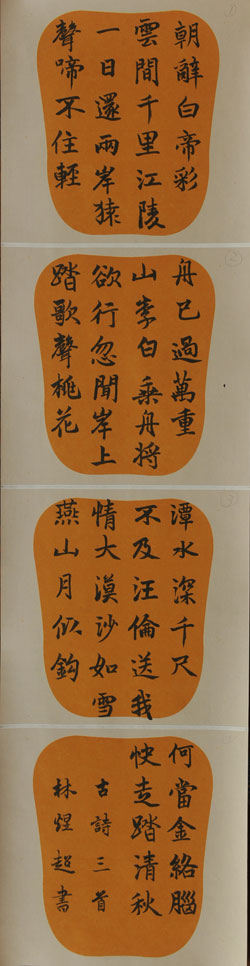 ①
朝辭白帝彩
雲間千里江陵
一日還兩岸猿
聲啼不住輕
②
舟已過萬重
山李白乘舟將
欲行忽聞岸上
踏歌聲桃花
③
潭水深千尺
不及汪倫送我
情大漠沙如雪
燕山月似鈎
何當金絡腦
快走踏清秋
古詩三首
林超書